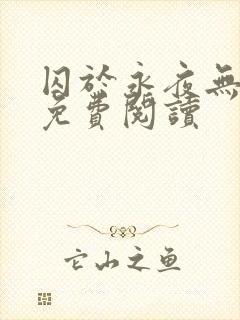 囚於永夜無
免費閱讀
它山之鱼